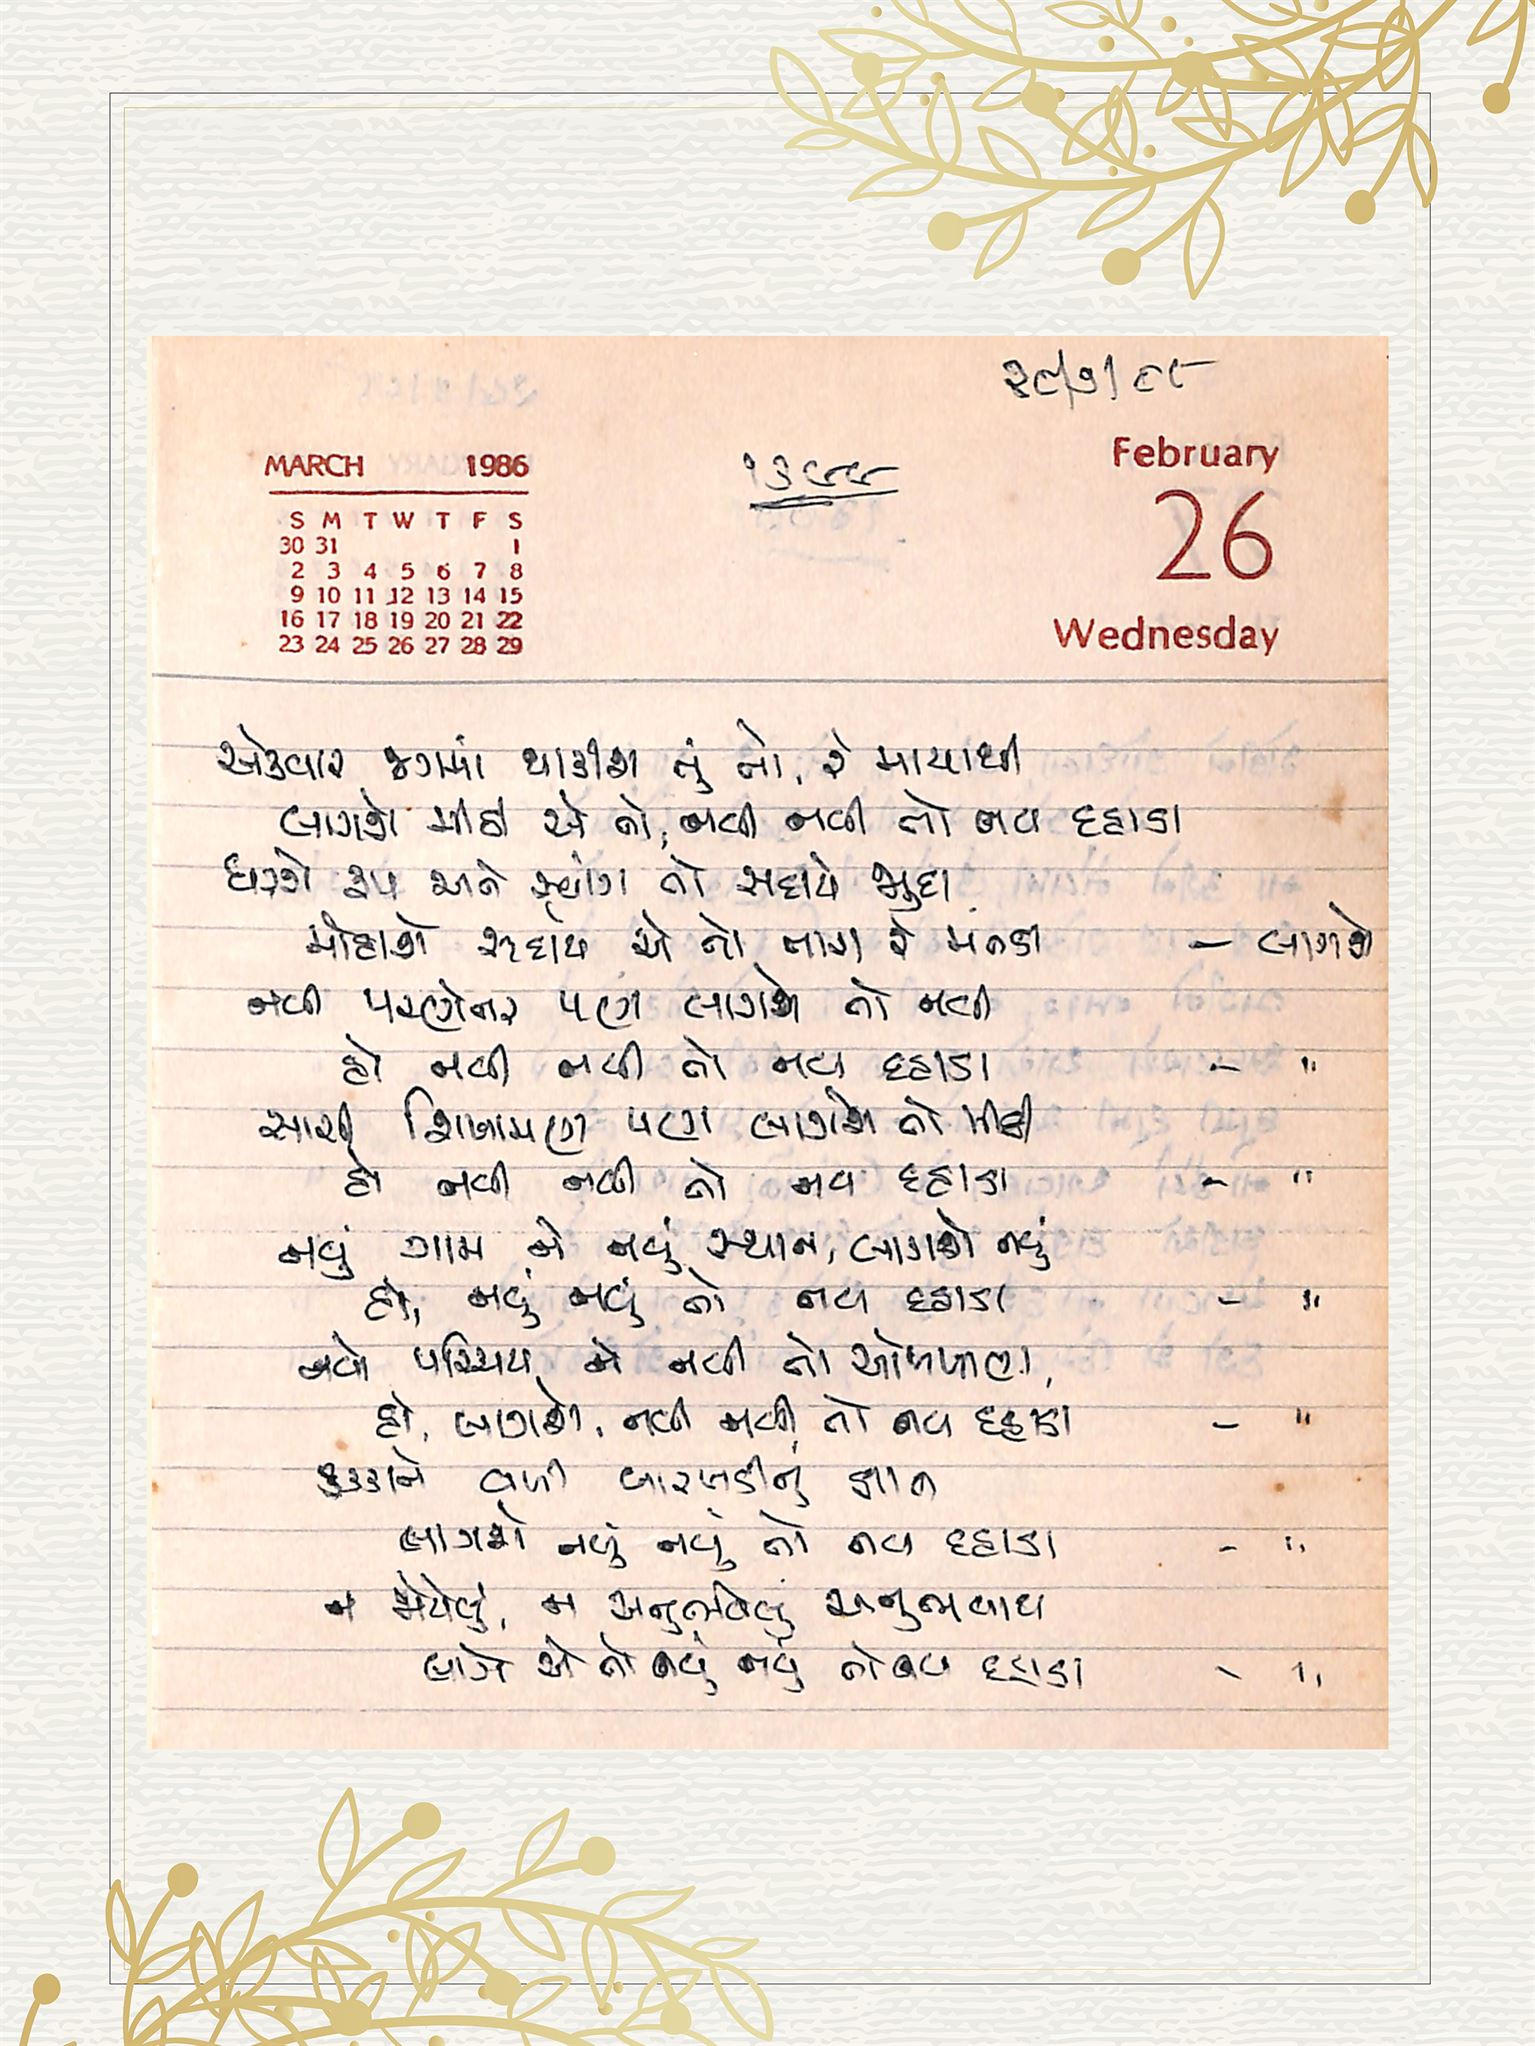 ૨૮/૭/૮૮
MARCH 1986
S M T W T F S
30 31 1
2 3 4 5 6 7 8
9 10 11 12 13 14 15
16 17 18 19 20 21 22
23 24 25 26 27 28 29
૧૩૯૯
February
26
Wednesday
એકવાર જગમાં થાકીશ તું તો, રે માયાથી
લાગશે મીઠી એ તો, નવી નવી તો નવ દહાડા
ધરશે રૂપ અને સ્વાંગ તો સદાયે જુદા
મોહાશે સદાય એ તો તારા રે મનડા - લાગશે
નવી પરણેતર પણ લાગશે તો નવી
હો નવી નવી તો નવ દહાડા - "
સાચી શિખામણ પણ લાગશે તો મીઠી
હો નવી નવી તો નવ દહાડા - "
નવું ગામ ને નવું સ્થાન, લાગશે નવું
હો, નવું નવું તો નવ દહાડા - "
નવો પરિચય ને નવી તો ઓળખાણ,
હો, લાગશે, નવી નવી તો નવ દહાડા - "
કક્કાને વળી બારખડીનું જ્ઞાન
લાગશે નવું નવું તો નવ દહાડા - "
ન જોયેલું, ન અનુભવેલું અનુભવાય
લાગે એ તો નવું નવું તો નવ દહાડા - "